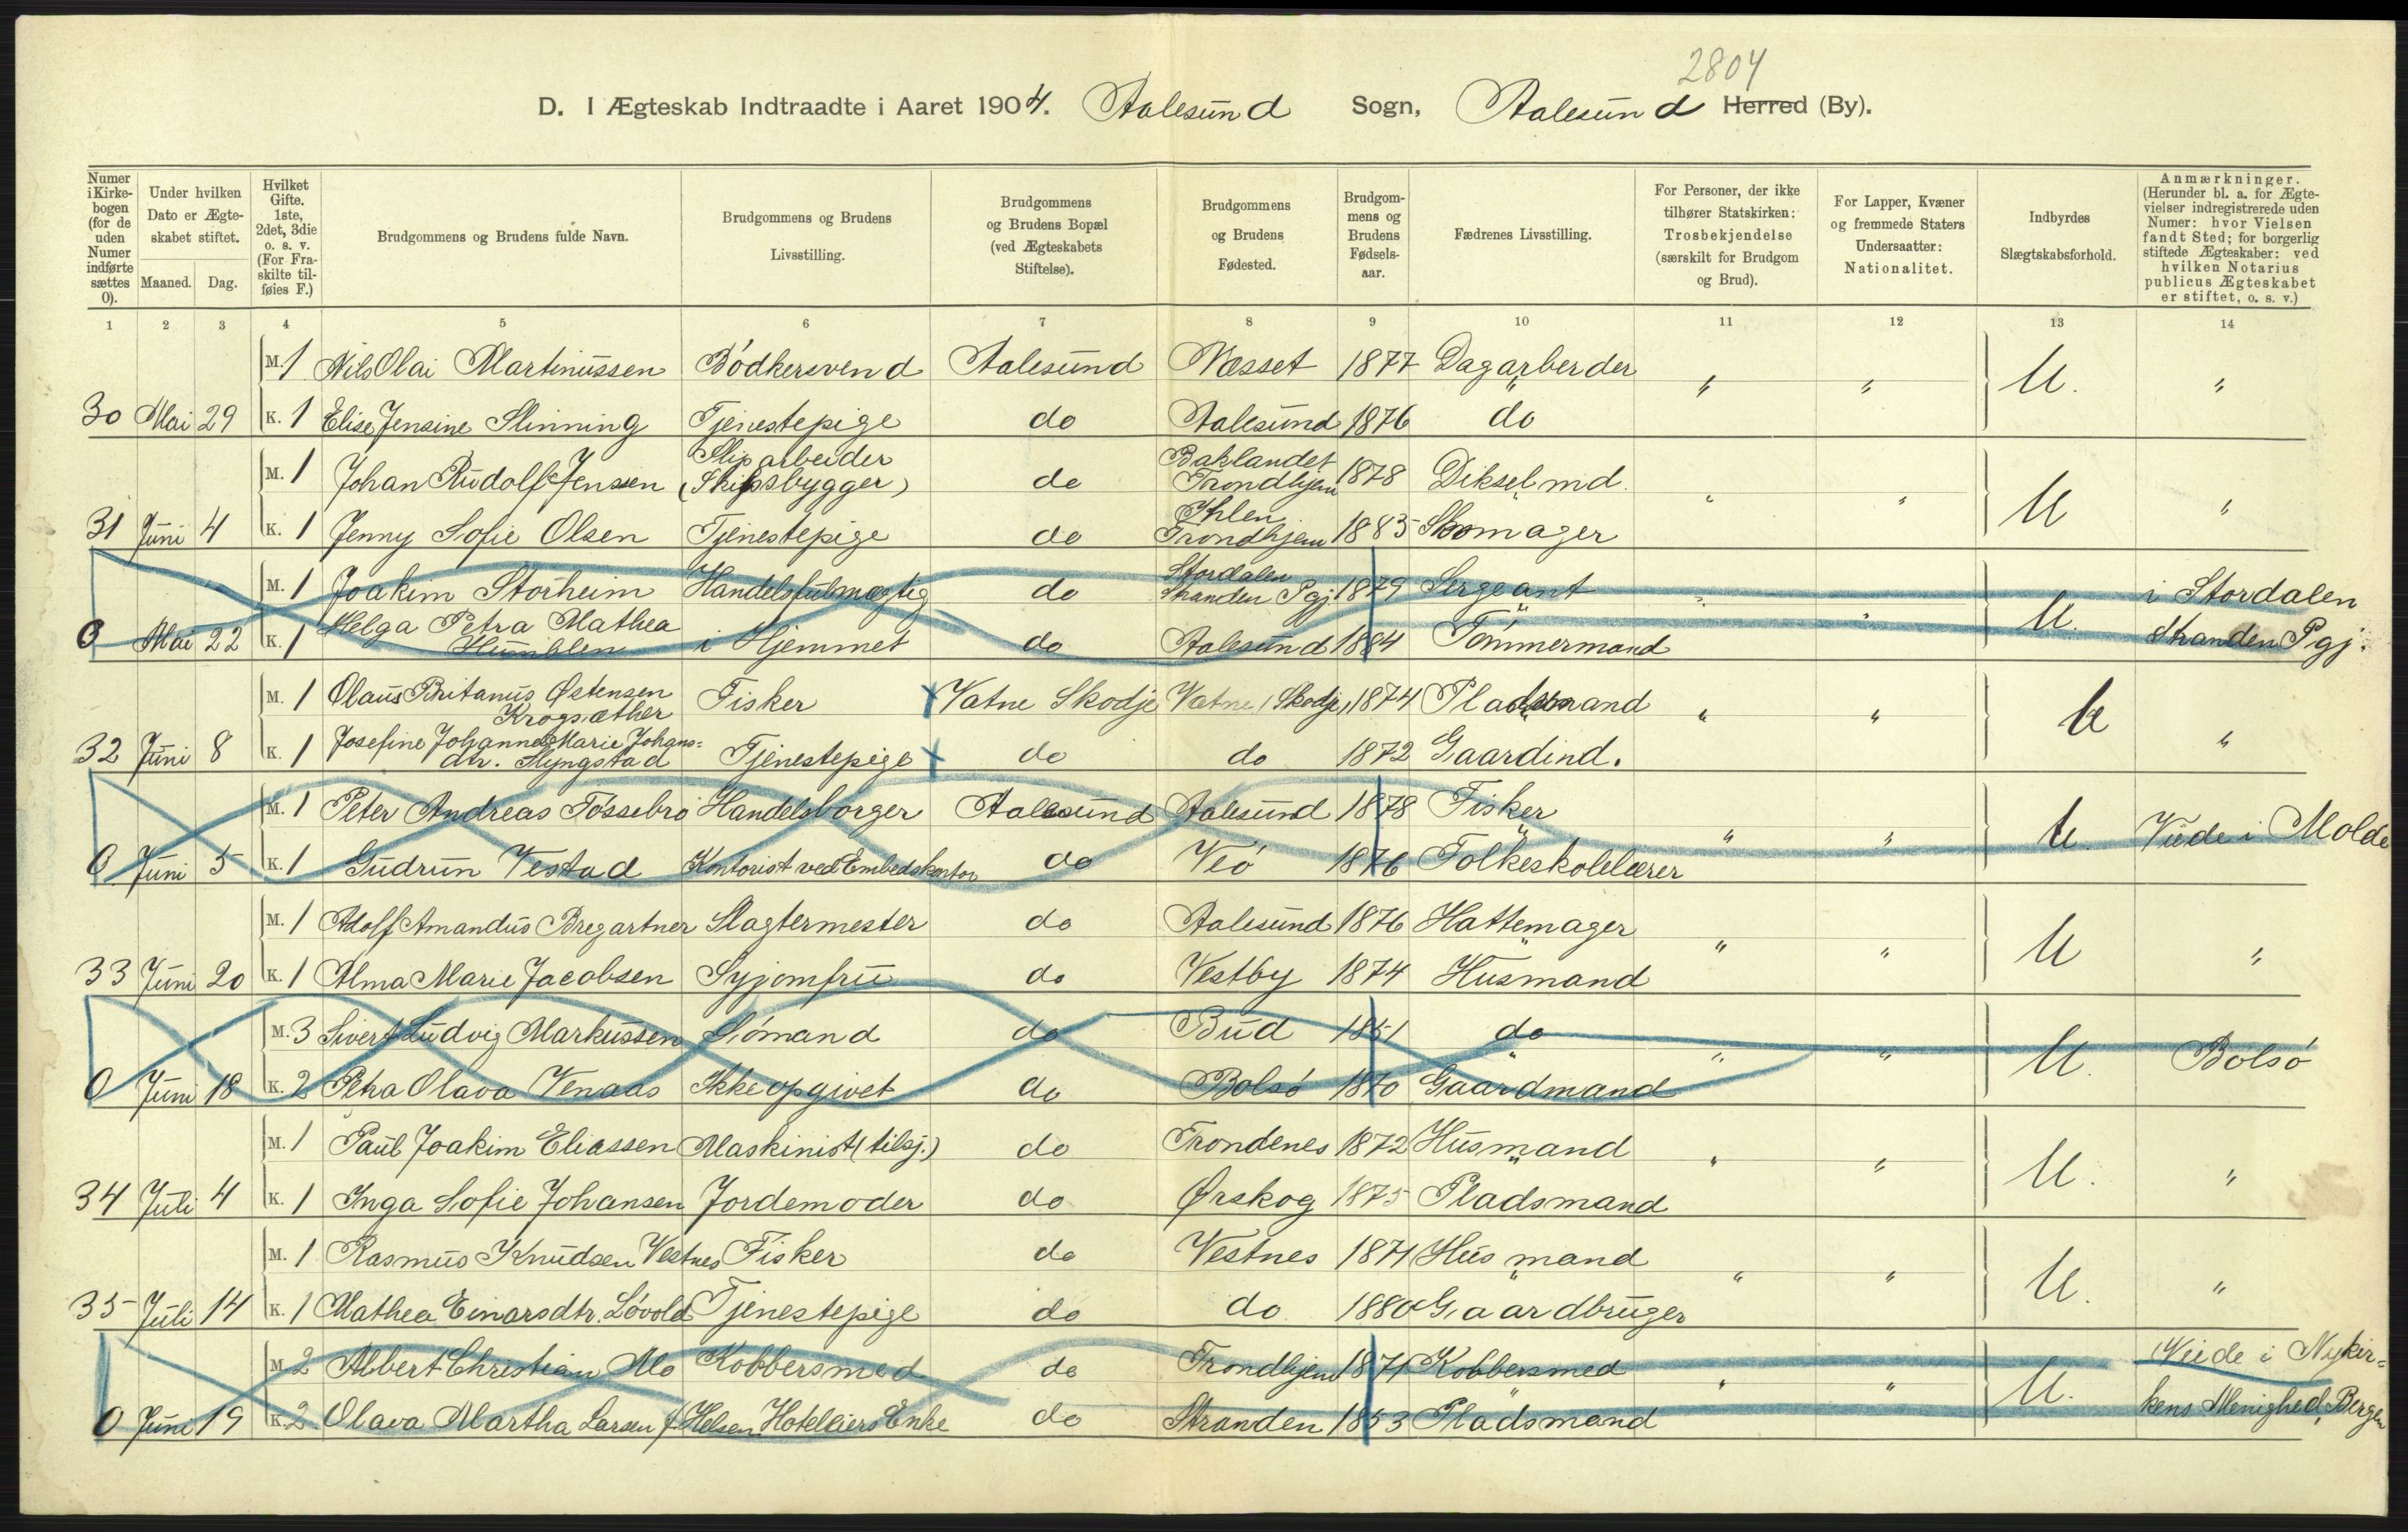 2804
D. I Ægteskab Indtraadte i Aaret 1904. Aalesund Sogn, Aalesund Herred (By).
Numer i Kirkebogen (for de uden Numer indførte sættes 0).
Under hvilken Dato er Ægteskabet stiftet.
Maaned. Dag.
Hvilket Gifte. 1ste, 2det, 3die o. s. v. (For Fraskilte tilføies F.)
Brudgommens og Brudens fulde Navn.
Brudgommens og Brudens Livsstilling.
Brudgommens og Brudens Bopæl (ved Ægteskabets Stiftelse).
Brudgommens og Brudens Fødested.
Brudgommens og Brudens Fødselsaar.
Fædrenes Livsstilling.
For Personer, der ikke tilhører Statskirken: Trosbekjendelse (særskilt for Brudgom og Brud).
For Lapper, Kvæner og fremmede Staters Undersaatter: Nationalitet.
Indbyrdes Slægtskabsforhold.
Anmærkninger. (Herunder bl. a. for Ægtevielser indregistrerede uden Numer: hvor Vielsen fandt Sted; for borgerlig stiftede Ægteskaber: ved hvilken Notarius publicus Ægteskabet er stiftet, o. s. v.)
1 2 3 4 5 6 7 8 9 10 11 12 13 14
M. 1 Nils Olai Martinussen Bödkersvend Aalesund Næsset 1877 Dagarbeider " " U. "
30 Mai 29 K. 1 Elise Jensine Slinning Tjenestepige do Aalesund 1876 do
M. 1 Johan Rudolf Jenssen Sliparbeider (Skibsbygger) do Baklandet Trondhjem 1878 Dikselmd. " " U "
31 Juni 4 K. 1 Jenny Sofie Olsen Tjenestepige do Ihlen Trondhjem 1883 Skomager
M. 1 Joakim Storheim Handelsfulmægtig do Stordalen Stranden Pgj. 1879 Sergeant " " U. i Stordalen
0 Mai 22 K. 1 Helga Petra Mathea Humblen i Hjemmet do Aalesund 1884 Tömmermand Stranden Pgj.
M. 1 Olaus Britanus Østensen Krogsæther Fisker Vatne Skodje Vatne (Skodje) 1874 Pladsmand " " U "
32 Juni 8 K. 1 Josefine Johanne Marie Johansdtr. Slyngstad Tjenestepige do do 1872 Gaardind.
M. 1 Peter Andreas Tössebro Handelsborger Aalesund Aalesund 1878 Fisker " " U. Viede i Molde
0 Juni 5 K. 1 Gudrun Vestad Kontorist ved Embedskontor do Veö 1876 Folkeskolelærer
M. 1 Adolf Amandus Bregartner Slagtermester do Aalesund 1876 Hattemager " " U "
33 Juni 20 K. 1 Alma Marie Jacobsen Syjomfru do Vestby 1874 Husmand
M. 3 Sivert Ludvig Markussen Sömand do Bud 1851 do " " U. Bolsö
0 Juni 18 K. 2 Petra Olava Venaas Ikke opgivet do Bolsö 1870 Gaardmand
M. 1 Paul Joakim Eliassen Maskinist (tilsj.) do Trondenes 1872 Husmand " " U. "
34 Juli 4 K. 1 Inga Sofie Johansen Jordemoder do Ørskog 1875 Pladsmand
M. 1 Rasmus Knudsen Vestnes Fisker do Vestnes 1871 Husmand " " U. "
35 Juli 14 K. 1 Mathea Einarsdtr. Lövold Tjenestepige do do 1880 Gaardbruger
M. 2 Albert Christian Mo Kobbersmed do Trondhjem 1871 Kobbersmed " " U. Viede i Nykir=
0 Juni 19 K. 2 Olava Martha Larsen f. Helsen Hoteleiers Enke do Stranden 1853 Pladsmand kens Menighed, Bergen